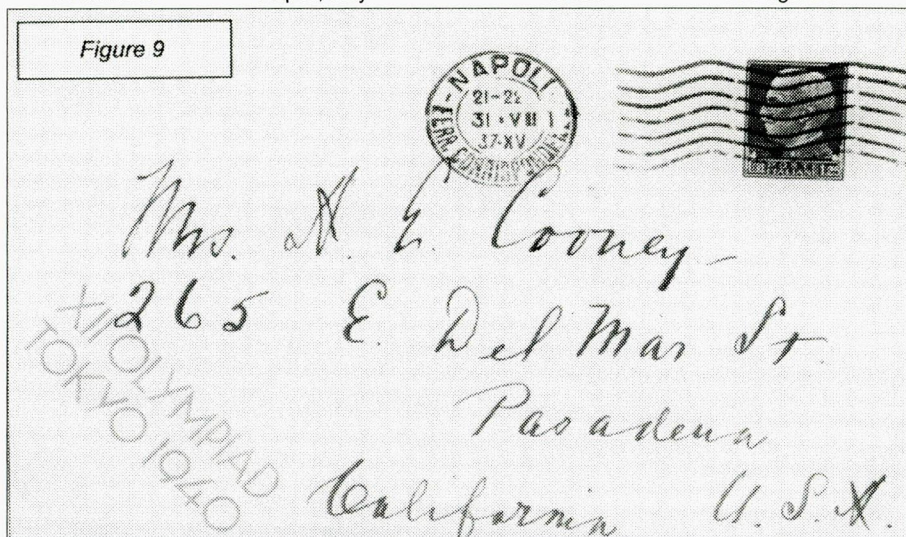 Figure 9
NAPOLI
21-22
31 • VIII
37-XV
Mrs. A. E. Cooney
265 E. Del Mar St.
Pasadena
California U.S.A.
XII OLYMPIAD
TOKYO 1940